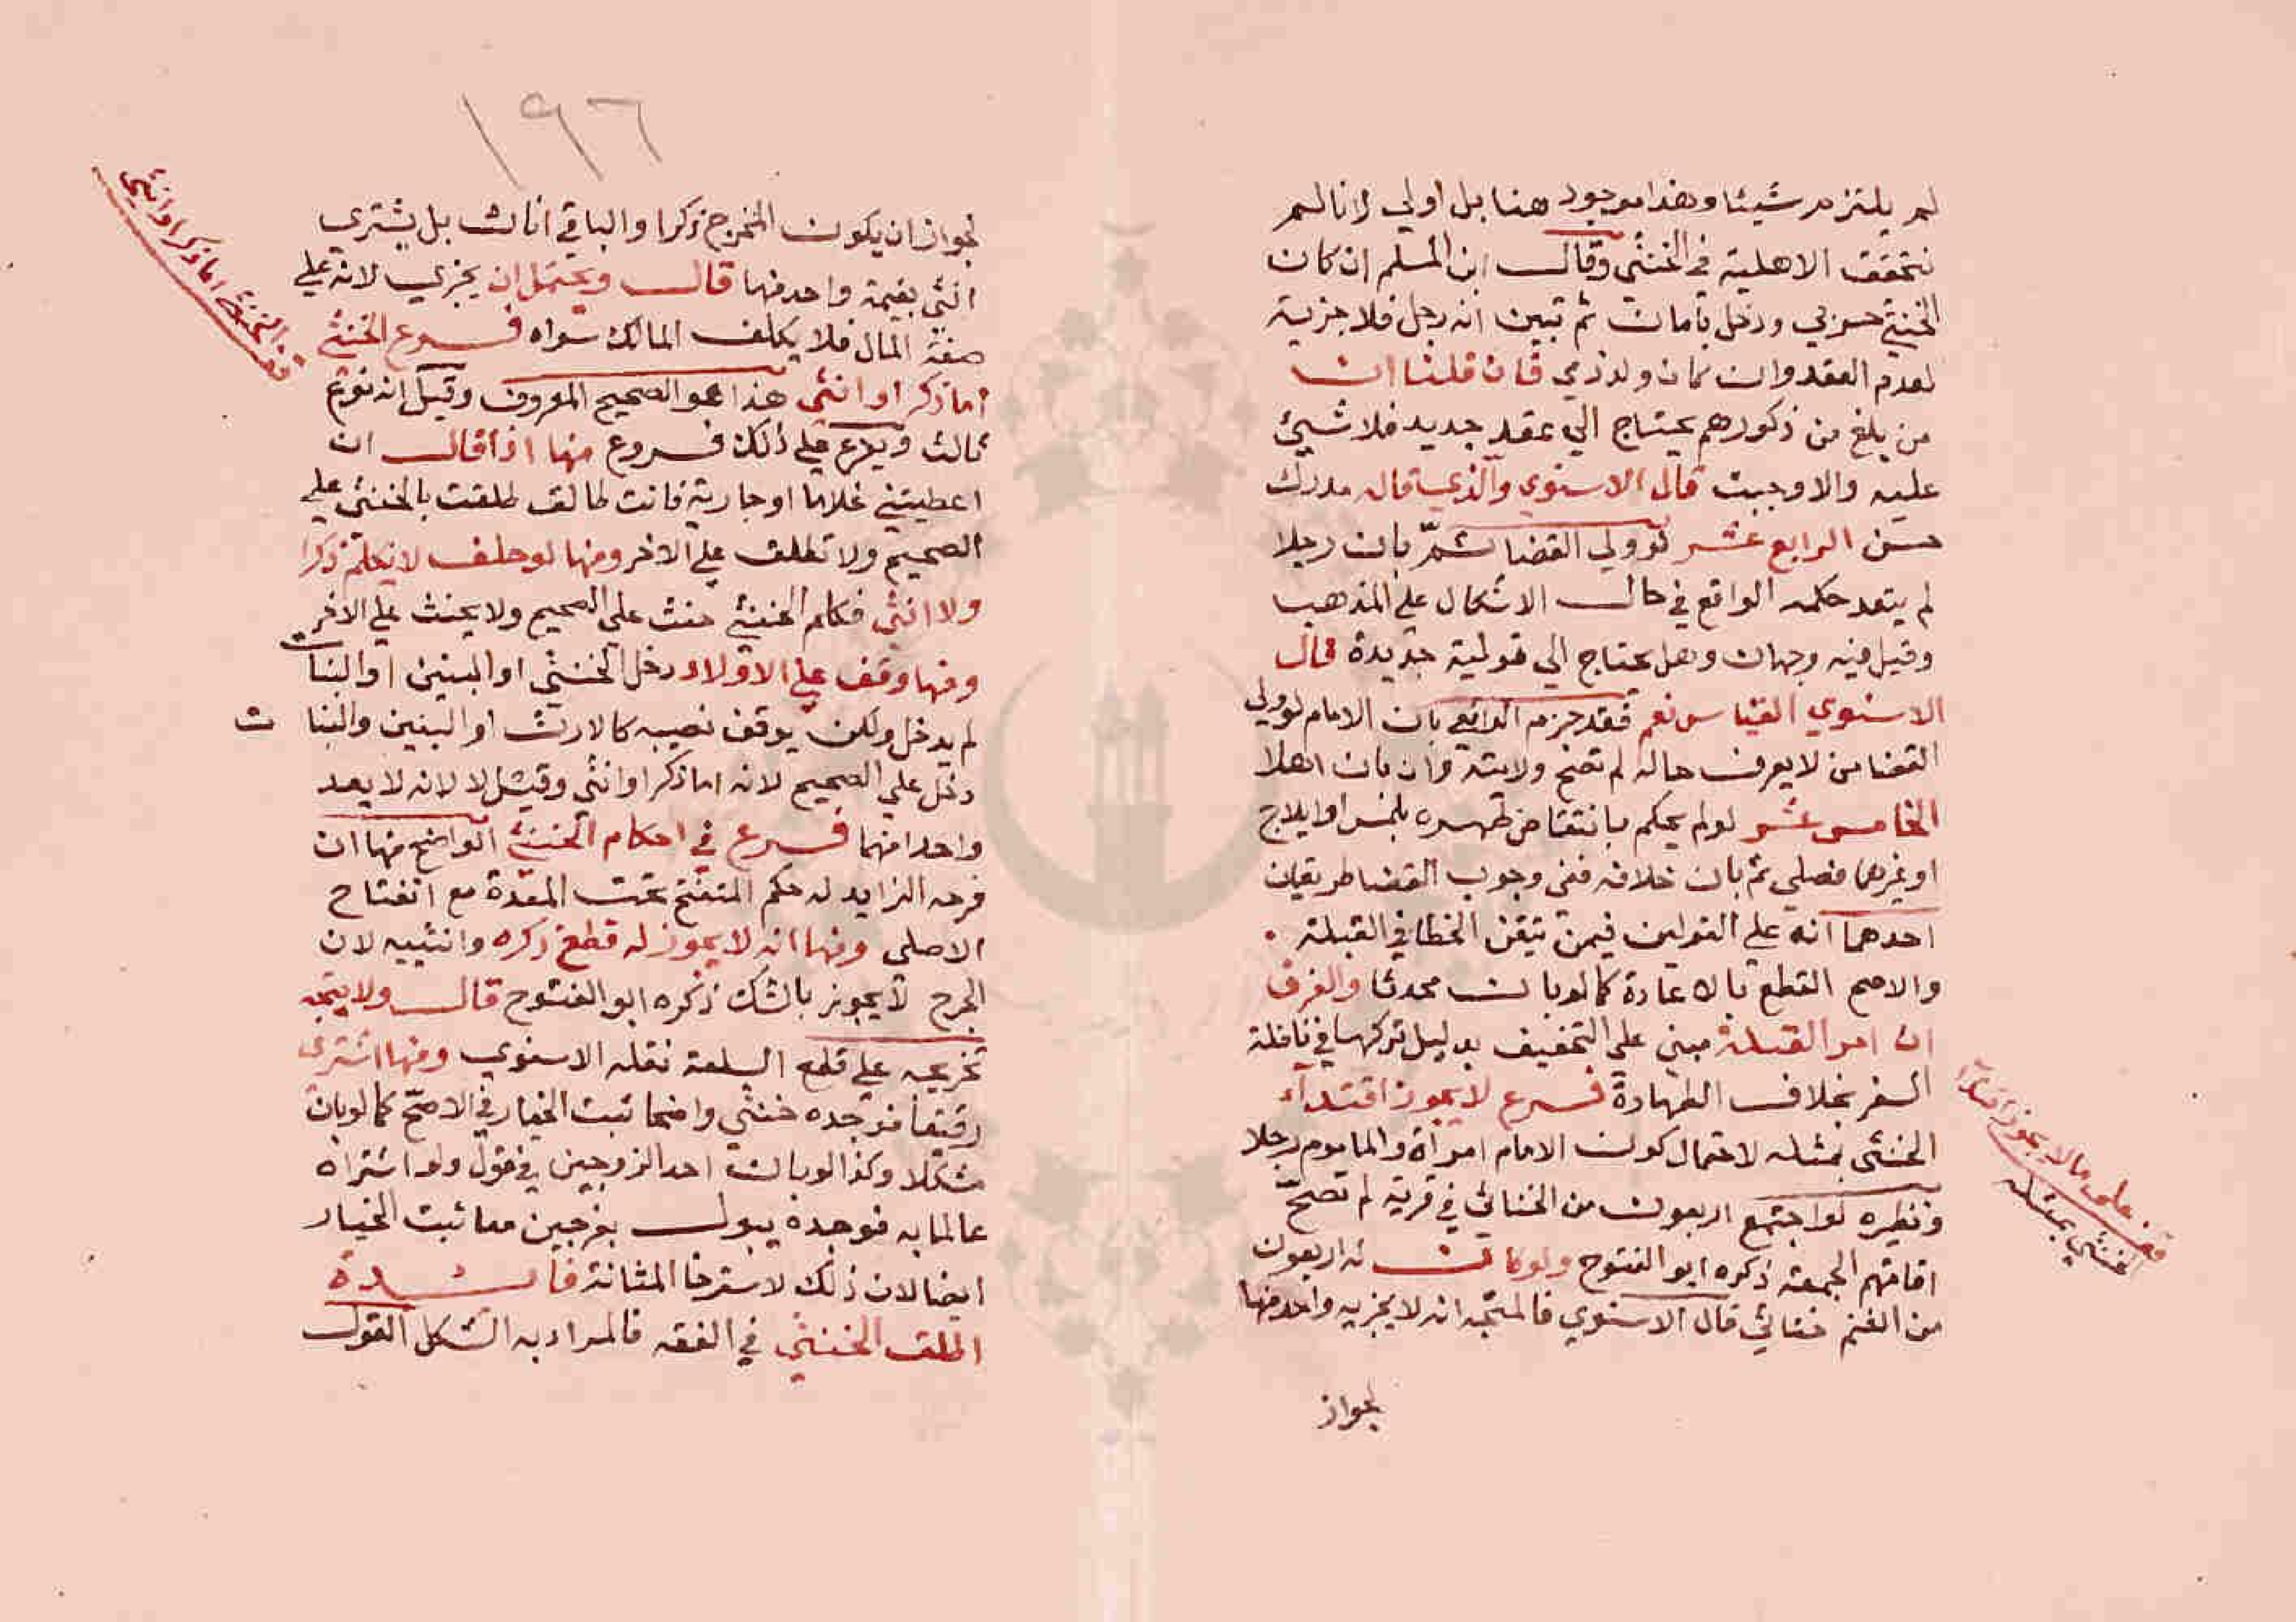 لم يلتزم شيئا وهذا موجود هنا بل اولي لانا لم
نتحقق الاهلية في الخنثى وقال ابن المسلم ان كان
الخنثي حربي ودخل بامان ثم تبين انه رجل فلا جزية
لعدم العقد وان كان ولد ذمي فان قلنا ان
من بلغ من ذكورهم يحتاج الي عقد جديد فلا شيئ
عليه والا وجبت قال الاسنوي والذي قاله مدرك
حسن الرابع عشر لو ولي القضا ثم بان رجلا
لم ينفذ حكمه الواقع في حال الاشكال علي المذهب
وقيل فيه وجهان وهل يحتاج الي تولية جديدة قال
الاسنوي القياس نعم فقد جزم الرافعي بان الامام لو ولي
القضا من لا يعرف حاله لم تصح ولايته وان بان اهلا
الخامس عشر لو لم يحكم بانتقاض طهره بلمس او ايلاج
او غيرهما فصلي ثم بان خلافه ففي وجوب القضا طريقان
احدهما انه علي القولين فيمن تيقن الخطا في القبلة
والاصح القطع بالاعادة كما لو بان محدثا والفرق
ان امر القبلة مبني علي التخفيف بدليل تركها في نافلة
السفر بخلاف الطهارة فرع لا يجوز اقتداء
الخنثى بمثله لاحتمال كون الامام امراة والماموم رجلا
ونظيره لو اجتمع اربعون من الخناثي في قرية لم تصح
اقامتهم الجمعة ذكره ابو الفتوح ولو كانت له اربعون
من الغنم خناثي قال الاسنوي فالمتجه انه لا يجزيه واحد منها
لجواز
قف على ما لا يجوز اقتدا
الخنثي بمثله
١٩٦
لجواز ان يكون المخرج ذكرا والباقي اناث بل يشتري
انثي بقيمة واحد منها قال ويحتمل ان يجزي لانه علي
صفة المال فلا يكلف المالك سواه فرع الخنثي
اما ذكر او انثى هذا هو الصحيح المعروف وقيل انه نوع
ثالث ويفرع علي ذلك فروع منها اذا قال ان
اعطيتني غلاما او جارية فانت طالق طلقت بالخنثي علي
الصحيح ولا تطلق علي الاخر ومنها لو حلف لا يكلم ذكرا
ولا انثى فكلم الخنثي حنث علي الصحيح ولا يحنث علي الاخر
ومنها وقف علي الاولاد دخل الخنثي او البنين او البنات
لم يدخل ولكن يوقف نصيبه كالارث او البنين والبنا ت
دخل علي الصحيح لانه اما ذكر او انثي وقيل لا لانه لا يعد
واحدا منهما فرع في احكام الخنثي الواضح منها ان
فرجه الزايد له حكم المنفتح تحت المعدة مع انفتاح
الاصلي ومنها انه لا يجوز له قطع ذكره وانثييه لان
الجرح لا يجوز بالشك ذكره ابو الفتوح قال ولا يتجه
تخريجه علي قطع السلعة نقله الاسنوي ومنها اشترى
رقيقا فوجده خنثي واضحا ثبت الخيار في الاصح كما لو بان
مشكلا وكذا لو بان احد الزوجين في قول ولو اشتراه
عالما به فوجده يبول بفرجين معا ثبت الخيار
ايضا لان ذلك لاسترخا المثانة فائدة
اطلق الخنثي في الفقه فالمراد به المشكل القول
قف الخنثي اما ذكر او انثي